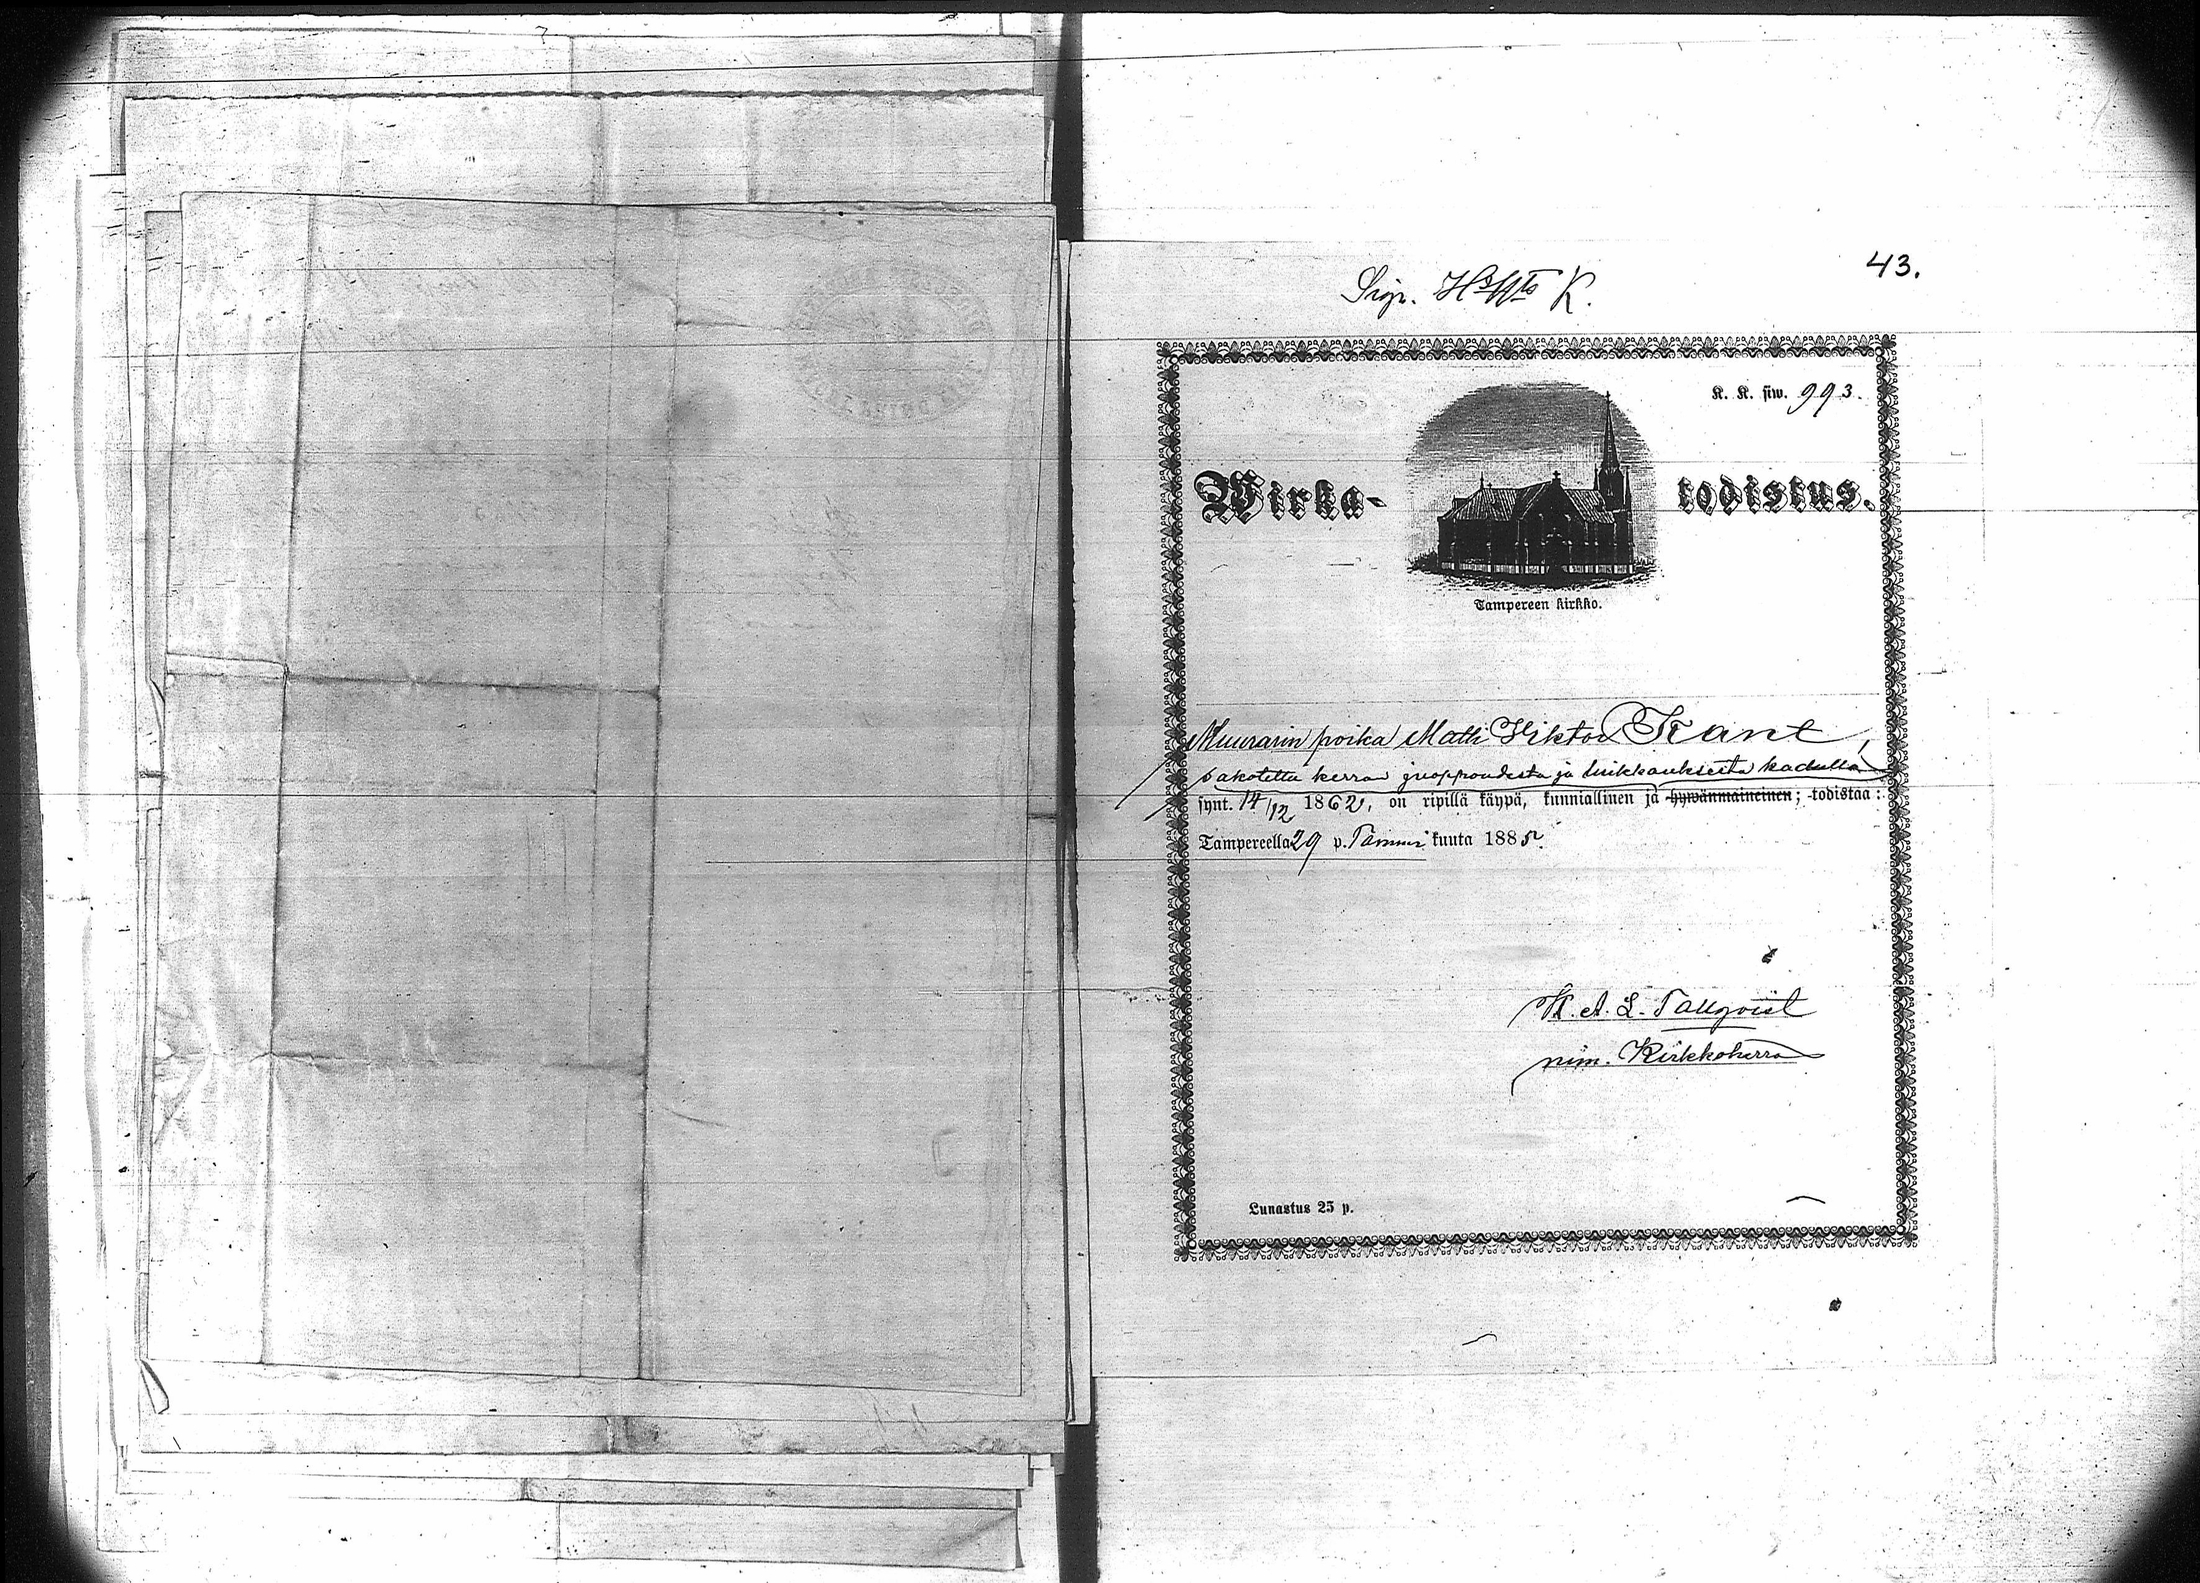 43.
K. K. siw. 993.
Wirka- todistus.
Tampereen kirkko.
Muurarin poika Matti Viktor Kant,
sakotettu kerran juoppoudesta ja kadulla
synt. 14/12 1862, on ripillä käypä, kunniallinen ja hywänmaineinen; todistaa:
Tampereella 29 p. Tammi kuuta 1885.
K. A. L. Tallqvist
nim. Kirkkoherra
Lunastus 25 p.